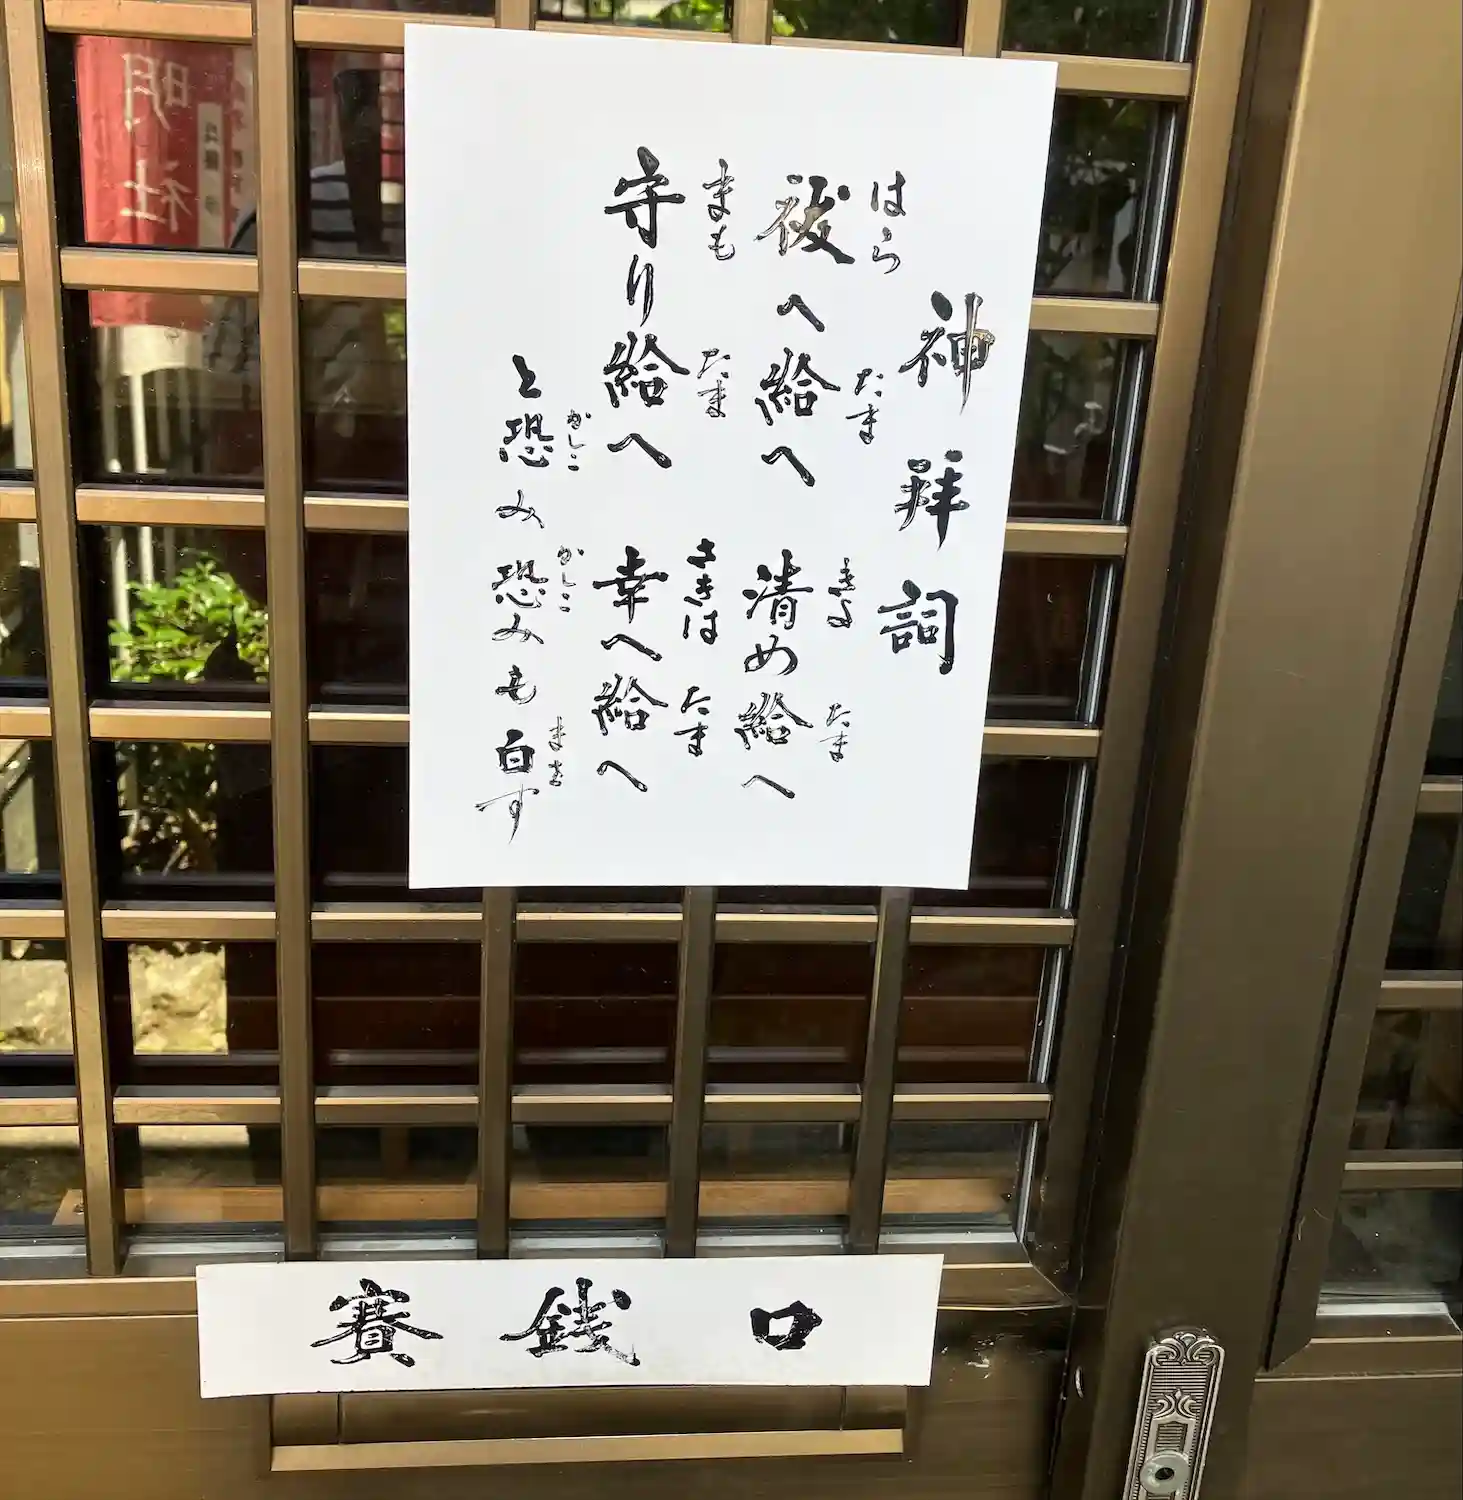 神拝詞
祓へ給へ 清め給へ
はら たま きよ たま
守り給へ 幸へ給へ
まも たま さきは たま
と恐み恐みも白す
かしこ かしこ まを
賽銭口
明社